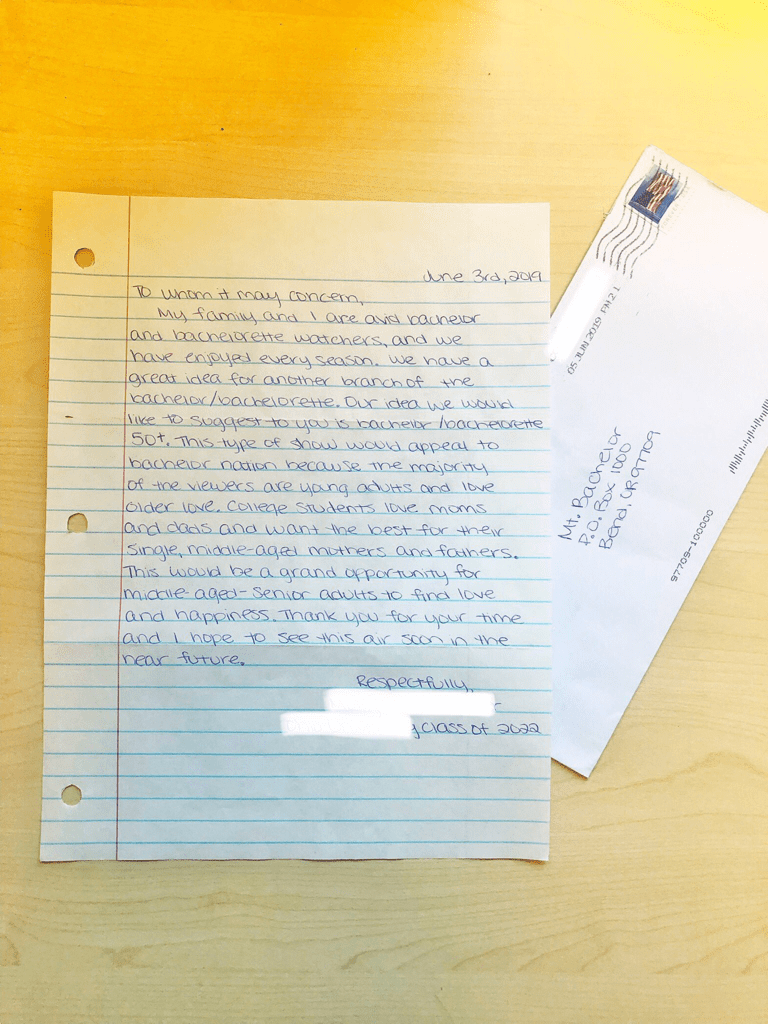 June 3rd, 2019
To whom it may concern,
My family and I are avid bachelor
and bachelorette watchers, and we
have enjoyed every season. We have a
great idea for another branch of the
bachelor/bachelorette. Our idea we would
like to suggest to you is bachelor/bachelorette
50+. This type of show would appeal to
bachelor nation because the majority
of the viewers are young adults and love
older love. College students love moms
and dads and want the best for their
single, middle-aged mothers and fathers.
This would be a grand opportunity for
middle-aged-senior adults to find love
and happiness. Thank you for your time
and I hope to see this air soon in the
near future.
Respectfully,
y class of 2022
05 JUN 2019 PM 2 L
Mt. Bachelor
P.O. Box 1000
Bend, OR 97709
97709-100000